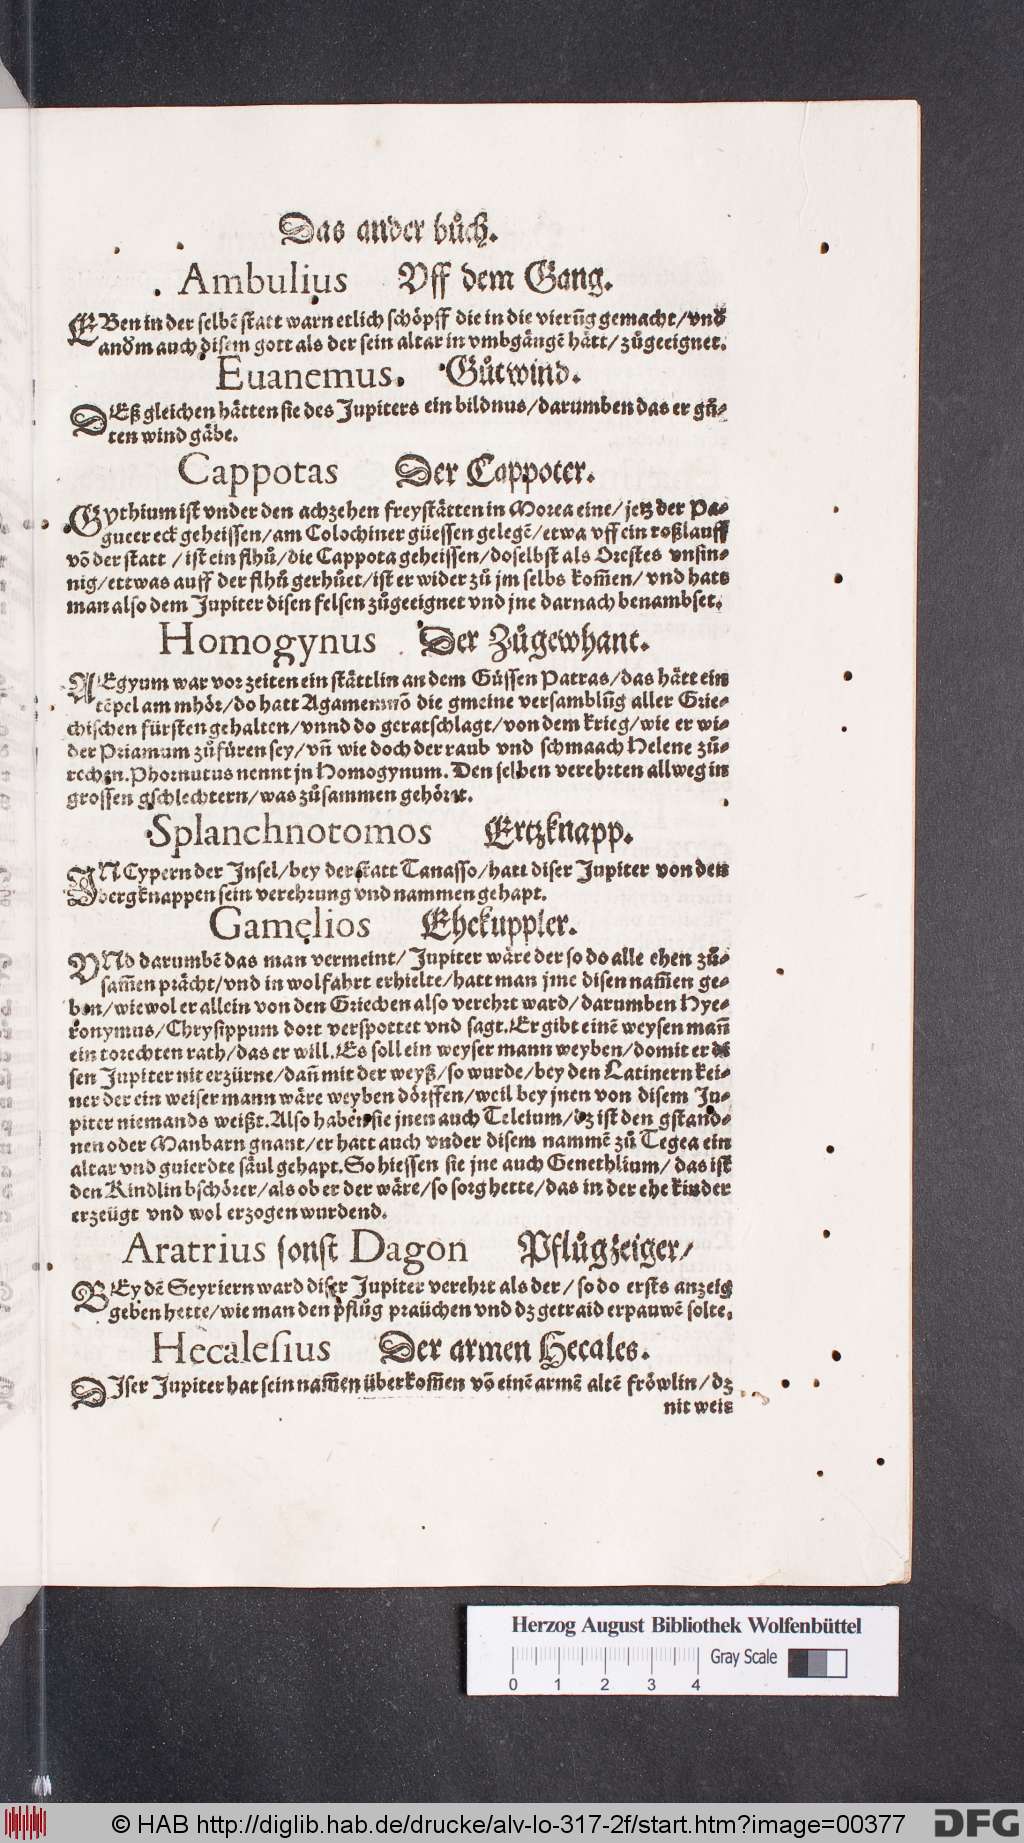 Das ander bůch.
Ambulius Vff dem Gang.
EBen in der selbē statt warn etlich schöpff die in die vierūg gemacht/vnd
andm auch disem gott als der sein altar in vmbgängē hätt/zůgeeignet.
Euanemus. Gůtwind.
DEß gleichen hätten sie des Jupiters ein bildnus/darumben das er gů-
ten wind gäbe.
Cappotas Der Cappoter.
GYthium ist vnder den achzehen freystätten in Morea eine/jetz der Pa-
gueer eck geheissen/am Colochiner güessen gelegē/etwa vff ein roßlauff
vō der statt /ist ein flhů/die Cappota geheissen/doselbst als Orestes vnsin-
nig/ettwas auff der flhů gerhůet/ist er wider zů jm selbs kom̄en/vnd hats
man also dem Jupiter disen felsen zůgeeignet vnd jne darnach benambset.
Homogynus Der Zůgewhant.
AEgyum war vor zeiten ein stättlin an dem Güssen Patras/das hätt ein
tēpel am mhör/do hatt Agamemnō die gmeine versamblūg aller Grie-
chischen fürsten gehalten/vnnd do geratschlagt/von dem krieg/wie er wi-
der Priamum zůfüren sey/vn̄ wie doch der raub vnd schmaach Helene zů-
rechen. Phornutus nennt jn Homogynum. Den selben verehrten allweg in
grossen gschlechtern/was zůsammen gehört.
Splanchnotomos Ertzknapp.
IN Cypern der Insel/bey der statt Tanasso/hatt diser Jupiter von den
bergknappen sein verehrung vnd nammen gehapt.
Gamelios Ehekuppler.
VNd darumbē das man vermeint/Jupiter wäre der so do alle ehen zů-
sam̄en prächt/vnd in wolfahrt erhielte/hatt man jme disen nam̄en ge-
ben/wiewol er allein von den Griechen also verehrt ward/darumben Hye-
ronymus/Chrysippum dort verspottet vnd sagt. Er gibt einē weysen man̄
ein torechten rath/das er will. Es soll ein weyser mann weyben/domit er di
sen Jupiter nit erzürne/dan̄ mit der weyß/so wurde/bey den Latinern kei-
ner der ein weiser mann wäre weyben dörffen/weil bey jnen von disem Ju-
piter niemands weißt. Also haben sie jnen auch Teleium/dz ist den gstand-
nen oder Manbarn gnant/er hatt auch vnder disem nammē zů Tegea ein
altar vnd guierdte säul gehapt. So hiessen sie jne auch Genethlium/das ist
den Kindlin bschörer/als ob er der wäre/so sorg hette/das in der ehe kinder
erzeügt vnd wol erzogen wurdend.
Aratrius sonst Dagon Pflůgzeiger/
BEy dē Seyriern ward diser Jupiter verehrt als der/so do ersts anzeig
geben hette/wie man den pflůg praüchen vnd dz getraid erpauwē solte.
Hecalesius Der armen Hecales.
DIser Jupiter hat sein nam̄en überkom̄en vō einē armē altē fröwlin/dz
nit weit
Herzog August Bibliothek Wolfenbüttel
Gray Scale
0 1 2 3 4
© HAB http://diglib.hab.de/drucke/alv-lo-317-2f/start.htm?image=00377
DFG